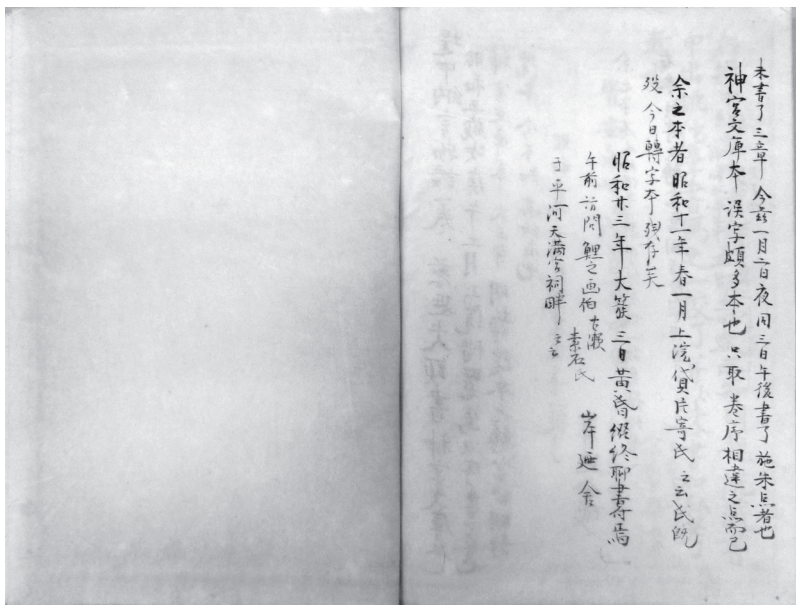 未書了三章 今玆一月二日夜同三日午後書了 施朱点者也
神宮文庫本 誤字頗多本也 只取巻序相違之点而已
余之本者 昭和十一年春一月上浣貸片寄氏 云云 氏既
歿 今日轉字本現存矣
昭和廿三年大簇 三日黄昏綴終聊書焉
午前訪問鯉之画伯 素石氏
于平河天満宮祠畔 云云
岸廼舎